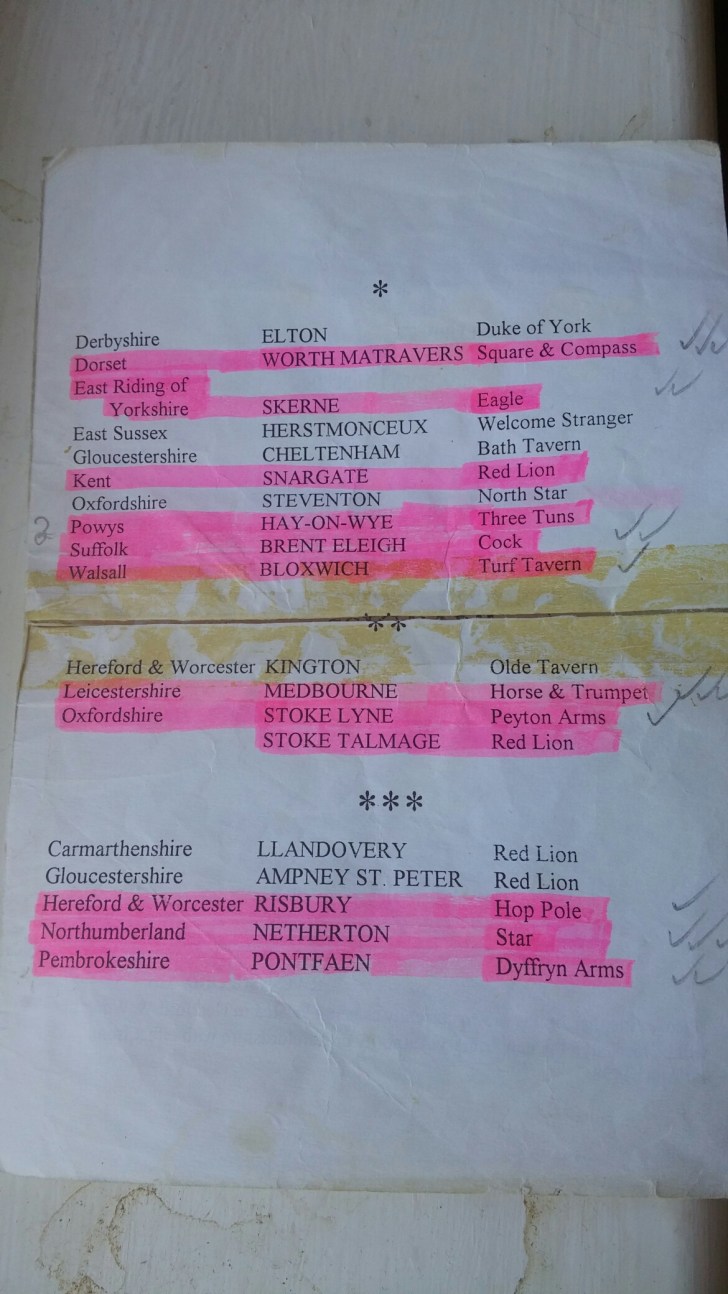 *
Derbyshire ELTON Duke of York
Dorset WORTH MATRAVERS Square & Compass
East Riding of
Yorkshire SKERNE Eagle
East Sussex HERSTMONCEUX Welcome Stranger
Gloucestershire CHELTENHAM Bath Tavern
Kent SNARGATE Red Lion
Oxfordshire STEVENTON North Star
2 Powys HAY-ON-WYE Three Tuns
Suffolk BRENT ELEIGH Cock
Walsall BLOXWICH Turf Tavern
**
Hereford & Worcester KINGTON Olde Tavern
Leicestershire MEDBOURNE Horse & Trumpet
Oxfordshire STOKE LYNE Peyton Arms
STOKE TALMAGE Red Lion
***
Carmarthenshire LLANDOVERY Red Lion
Gloucestershire AMPNEY ST. PETER Red Lion
Hereford & Worcester RISBURY Hop Pole
Northumberland NETHERTON Star
Pembrokeshire PONTFAEN Dyffryn Arms